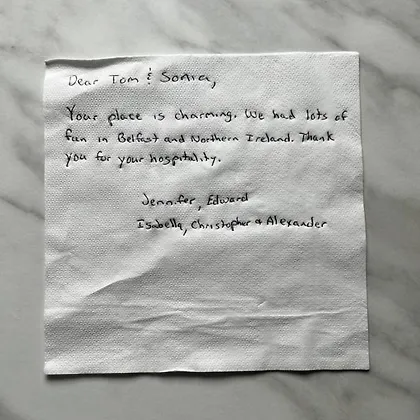 Dear Tom & Sonia,
Your place is charming. We had lots of
fun in Belfast and Northern Ireland. Thank
you for your hospitality.
Jennifer, Edward
Isabella, Christopher & Alexander